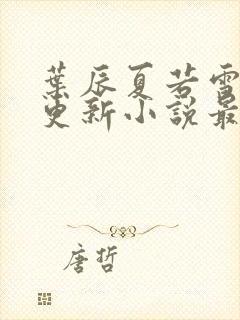 葉辰夏若雪
更新小說最
唐哲